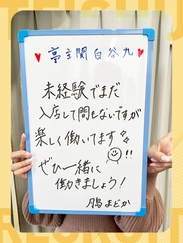 ♥亭主関白谷九♥
未経験でまだ
入店して間もないですが
楽しく働いてます
!!
ぜひ一緒に
働きましょう!
まどか